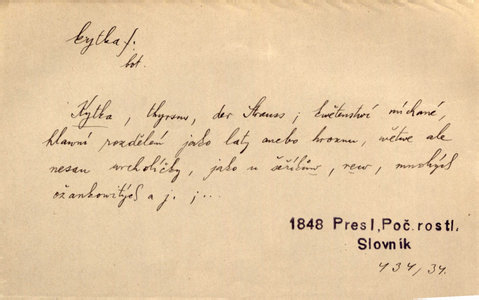 kytka f.
bot.
Kytka, thyrsus, der Strauss; květenství míchané,
hlavní rozdělení jako laty anebo hroznu, větve ale
nesau vrcholičky, jako u šeříkův, rev, mnohých
ožankovitých a j. ;...
1848 Presl, Poč. rostl.
Slovník
434/34.